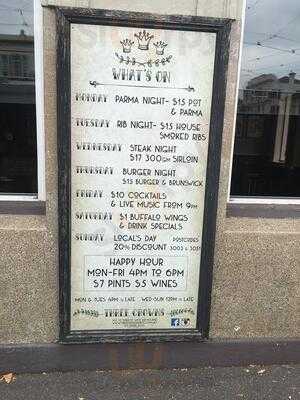 WHAT'S ON
MONDAY PARMA NIGHT- $15 POT
& PARMA
TUESDAY RIB NIGHT- $15 HOUSE
SMOKED RIBS
WEDNESDAY STEAK NIGHT
$17 300GM SIRLOIN
THURSDAY BURGER NIGHT
$15 BURGER & BRUNSWICK
FRIDAY $10 COCKTAILS
& LIVE MUSIC FROM 9PM
SATURDAY $1 BUFFALO WINGS
& DRINK SPECIALS
SUNDAY LOCAL'S DAY POSTCODES
20% DISCOUNT 3003 & 3051
HAPPY HOUR
MON-FRI 4PM TO 6PM
$7 PINTS $5 WINES
MON & TUES 4PM TIL LATE WED-SUN 12PM TIL LATE
THREE CROWNS